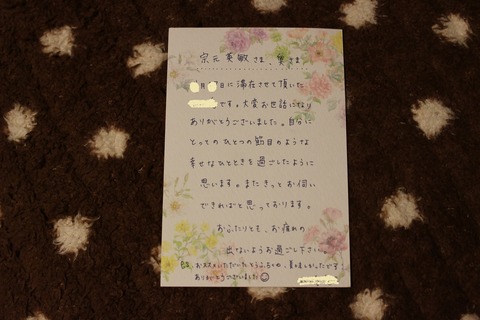 宗元英敏さま、奥さま
月 日に滞在させて頂いた
です。大変お世話になり
ありがとうございました。自分に
とってのひとつの節目のような
幸せなひとときを過ごしたように
思います。またきっとお伺い
できればと思っております。
おふたりとも、お疲れの
出ないようお過ごし下さい。
おススメいただいた 美味しかったです!
ありがとうございました